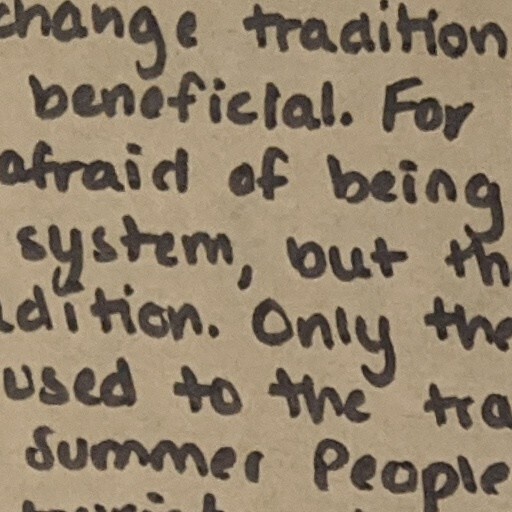 change tradition
beneficial. For
afraid of being
system, but th
dition. Only the
used to the tra
summer People
tourist